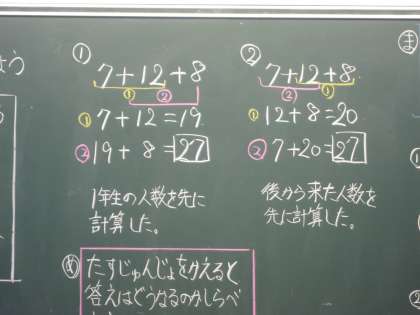 ①
7+12+8
① ②
① 7+12=19
② 19+8=27
1年生の人数を先に
計算した。
②
7+12+8
② ①
① 12+8=20
② 7+20=27
後から来た人数を
先に計算した。
め
たすじゅんじょをかえると
答えはどうなるのかしらべ